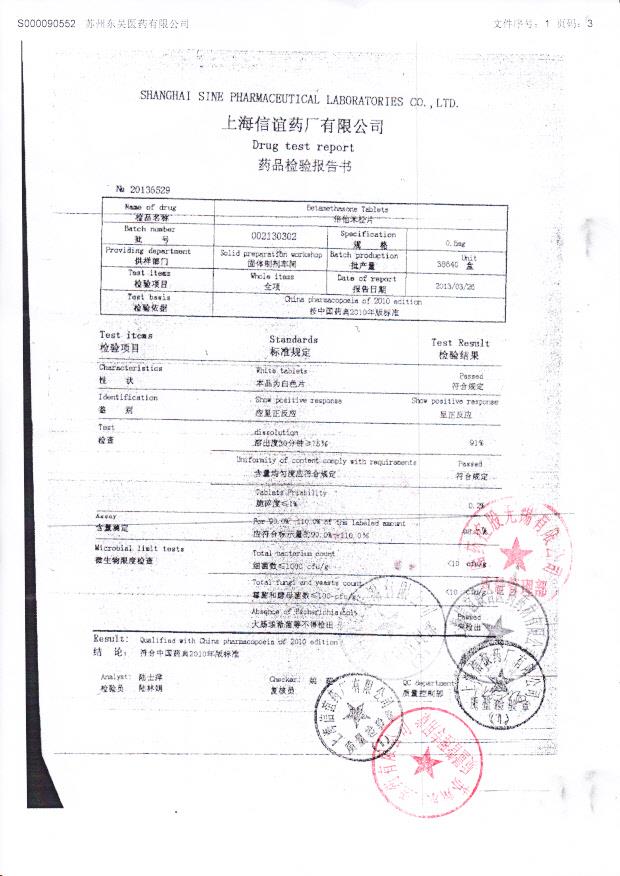 S000090552 苏州东吴医药有限公司 文件序号: 1 页码: 3
SHANGHAI SINE PHARMACEUTICAL LABORATORIES CO.,LTD.
上海信谊药厂有限公司
Drug test report
药品检验报告书
№ 20135529
Name of drug Betamethasone Tablets
检品名称 倍他米松片
Batch number 002130302 Specification 0.5mg
批 号 规 格
Providing department Solid preparation workshop Batch production 38640 Unit
供样部门 固体制剂车间 批产量 盒
Test items Whole items Date of report 2013/03/26
检验项目 全项 报告日期
Test basis China pharmacopoeia of 2010 edition
检验依据 按中国药典2010年版标准
Test items Standards Test Result
检验项目 标准规定 检验结果
Characteristics White tablets Passed
性 状 本品为白色片 符合规定
Identification Show positive response Show positive response
鉴 别 应显正反应 显正反应
Test dissolution
检查 溶出度30分钟≥75% 91%
Uniformity of content comply with requirements Passed
含量均匀度应符合规定 符合规定
Tablets Friability
脆碎度≤1% 0.2%
Assay For 90.0%-110.0% of the labeled amount
含量测定 应符合标示量的90.0%-110.0%
Microbial limit tests Total bacterium count
微生物限度检查 细菌数≤1000 cfu/g <10 cfu/g
Total fungi and yeasts count
霉菌和酵母菌数≤100 cfu/g <10 cfu/g
Absence of Escherichia coli Passed
大肠埃希菌等不得检出
Result: Qualified with China pharmacopoeia of 2010 edition
结 论: 符合中国药典2010年版标准
Analyst: 陆士萍 Checker: QC department
检验员 陆林娟 复核员 质量控制部
上海信谊药厂有限公司
(1)
上海信谊药厂有限公司
(1)